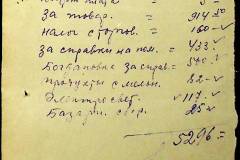 за товар. = 914 50
налог с торгов. = 160 =
за справки на пом. = 433 =
Богвановка за справ = 540 =
продукты с мельн. 82 =
Электросвет. 117 =
Базарн. сбор. 25
5296 =